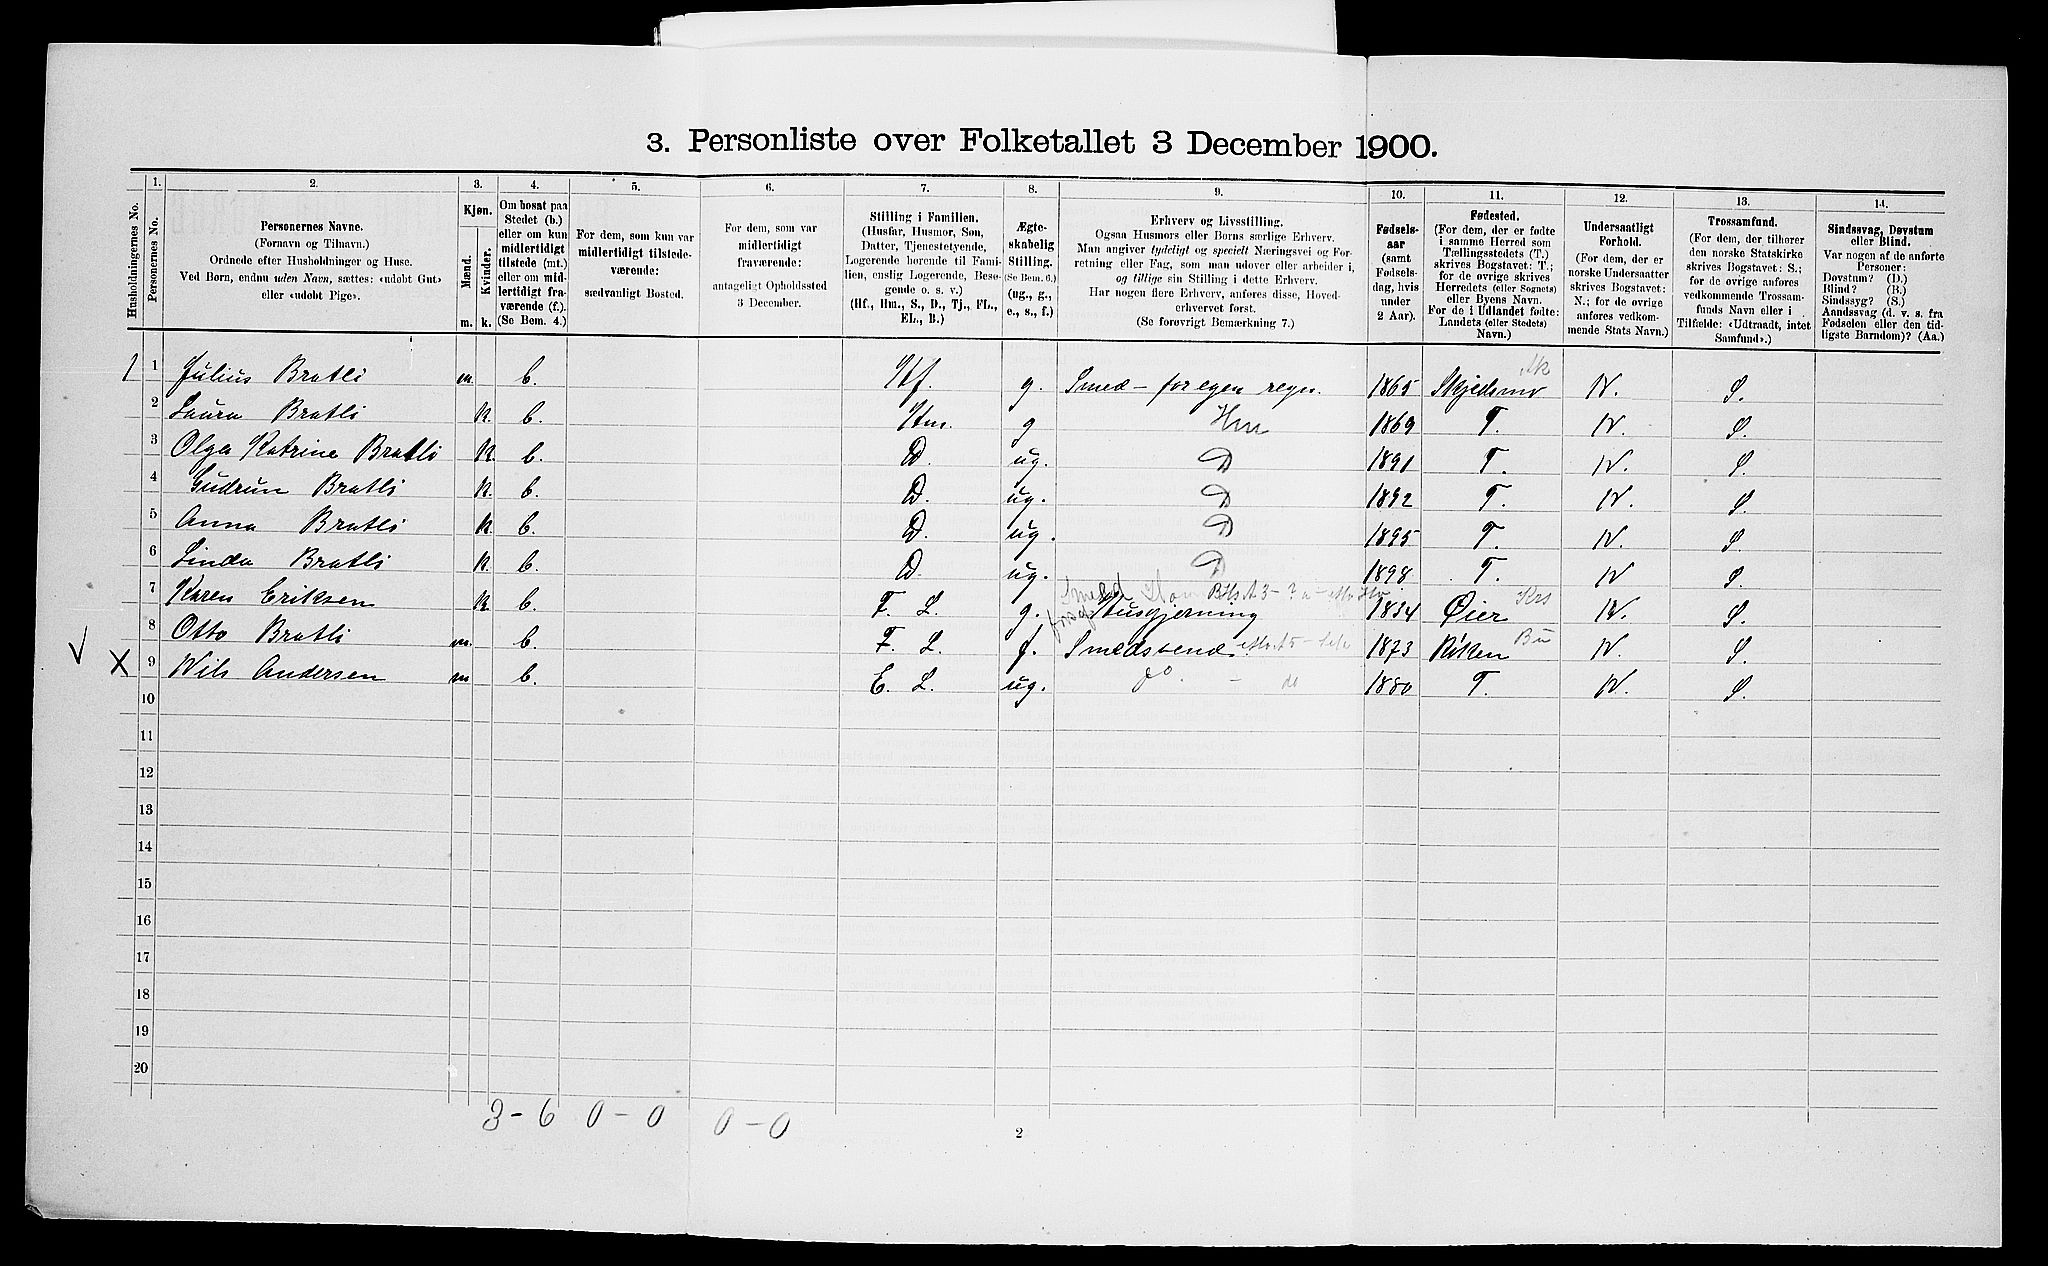 3. Personliste over Folketallet 3 December 1900.
Husholdningernes No.
1. Personernes No.
2. Personernes Navne.
(Fornavn og Tilnavn.)
Ordnede efter Husholdninger og Huse.
Ved Børn, endnu uden Navn, sættes: «udøbt Gut»
eller «udøbt Pige».
3. Kjøn.
Mænd. m.
Kvinder. k.
4. Om bosat paa
Stedet (b.)
eller om kun
midlertidigt
tilstede (mt.)
eller om mid-
lertidigt fra-
værende (f.).
(Se Bem. 4.)
5. For dem, som kun var
midlertidigt tilstede-
værende:
sædvanligt Bosted.
6. For dem, som var
midlertidigt
fraværende:
antageligt Opholdssted
3 December.
7. Stilling i Familien.
(Husfar, Husmor, Søn,
Datter, Tjenestetyende,
Logerende hørende til Fami-
lien, enslig Logerende, Besø-
gende o. s. v.)
(Hf., Hm., S., D., Tj., FL.,
EL., B.)
8. Ægte-
skabelig
Stilling.
(Se Bem. 6.)
(ug., g.,
e., s., f.)
9. Erhverv og Livsstilling.
Ogsaa Husmors eller Børns særlige Erhverv.
Man angiver tydeligt og specielt Næringsvei og For-
retning eller Fag, som man udøver eller arbeider i,
og tillige sin Stilling i dette Erhverv.
Har nogen flere Erhverv, anføres disse, Hoved-
erhvervet først.
(Se forøvrigt Bemærkning 7.)
10. Fødsels-
aar
(samt
Fødsels-
dag, hvis
under
2 Aar).
11. Fødested.
(For dem, der er fødte
i samme Herred som
Tællingsstedets (T.)
skrives Bogstavet: T.;
for de øvrige skrives
Herredets (eller Sognets)
eller Byens Navn.
For de i Udlandet fødte:
Landets (eller Stedets)
Navn.)
12. Undersaatligt
Forhold.
(For dem, der er
norske Undersaatter
skrives Bogstavet:
N.; for de øvrige
anføres vedkom-
mende Stats Navn.)
13. Trossamfund.
(For dem, der tilhører
den norske Statskirke
skrives Bogstavet: S.;
for de øvrige anføres
vedkommende Trossam-
funds Navn eller i
Tilfælde: «Udtraadt, intet
Samfund».)
14. Sindssvag, Døvstum
eller Blind.
Var nogen af de anførte
Personer:
Døvstum? (D.)
Blind? (B.)
Sindssyg? (S.)
Aandssvag (d. v. s. fra
Fødselen eller den tid-
ligste Barndom)? (Aa.)
1 1 Julius Bratli m. b. Hf. g. Smed – for egen regn. 1865 Skjedsmo Ak N. S.
2 Laura Bratli k. b. Hm. g Hm 1869 T. N. S.
3 Olga Katrine Bratli k. b. D. ug. D 1891 T. N. S.
4 Gudrun Bratli k. b. D. ug. D 1892 T. N. S.
5 Anna Bratli k b. D. ug. D 1895 T. N. S.
6 Linda Bratli k. b. D. ug. D 1898 T. N S.
7 Karen Eriksen k b. F. L. g. Husgjerning 1834 Øier Krs N. S.
8 Otto Bratli m. b. F. L. f. Smedsvend 1873 Röken Bu N. S.
X 9 Nils Andersen m b. E. L. ug. do. – do 1880 T. N. S.
10
11
12
13
14
15
16
17
18
19
20
3 – 6 0 – 0 0 – 0
2